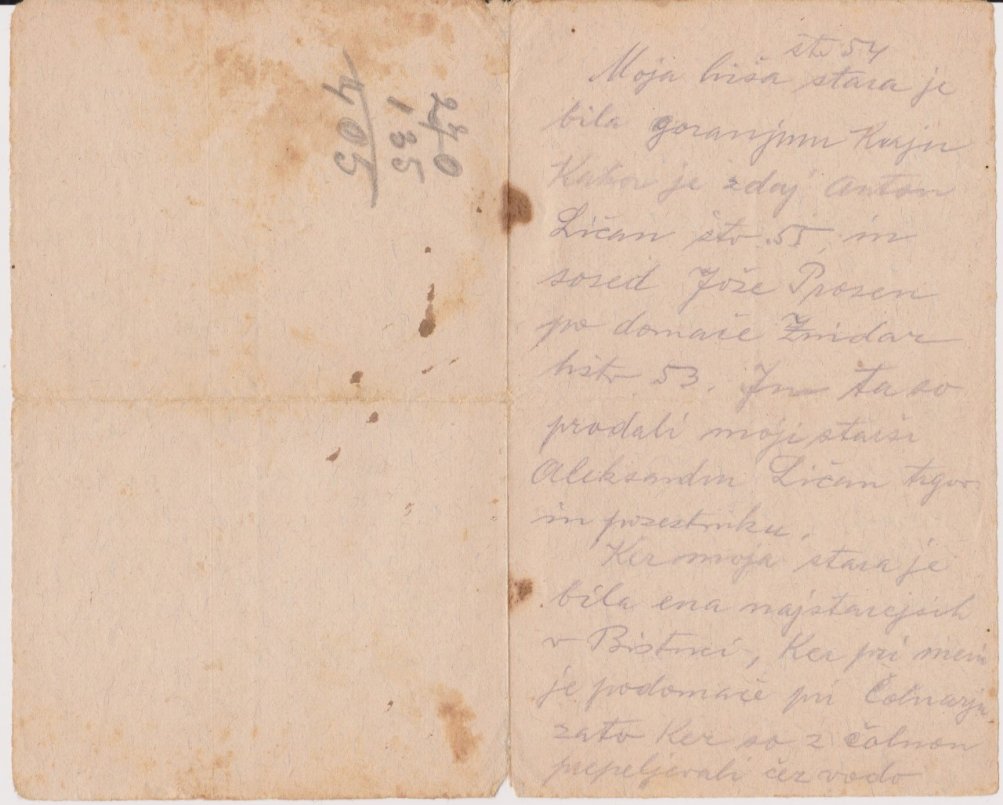 240
135
405
štv 54
Moja hiša stara je
bila goranjmu Kraju
Kakor je zdaj Anton
Ličan štv. 55, in
sosed Jože Prosen
po domače Žnidar
hštv 53. In ta so
prodali moji starši
Aleksandru Ličan trgov.
in posestniku.
Ker moja stara je
bila ena najstarejših
v Bistrici, Ker pri meni
je podomače pri Čolnarju
zato Ker so z čolnom
prepeljevali čez vodo